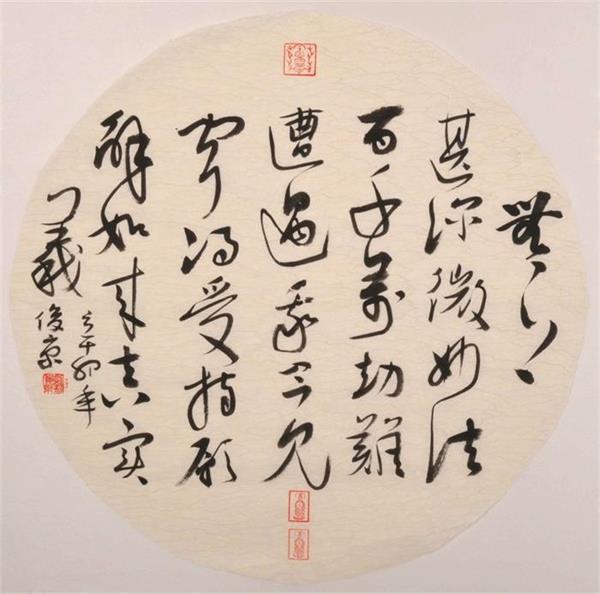 無上
甚深微妙法
百千萬劫難
遭遇我今見
聞得受持願
解如來真實
義
卯年
俊京